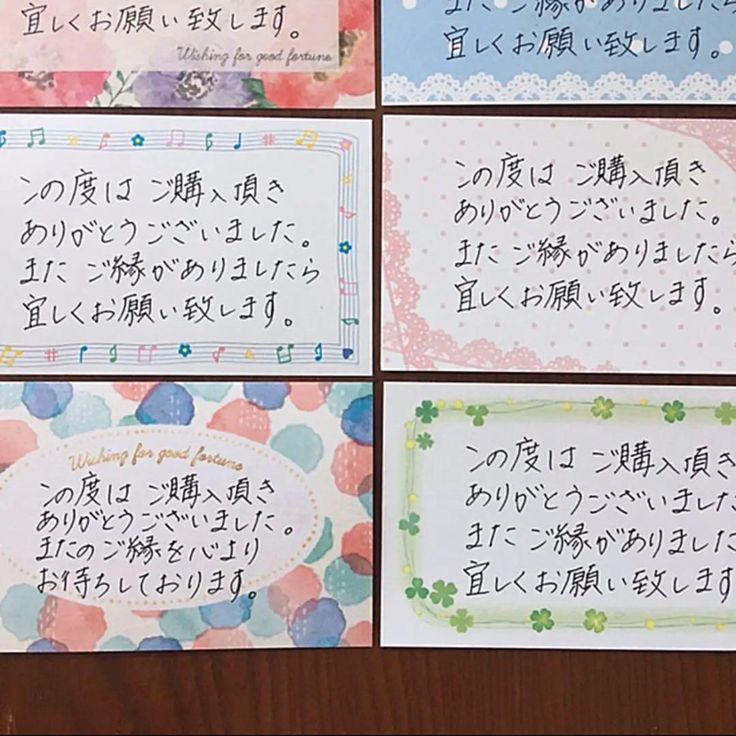 宜しくお願い致します。
Wishing for good fortune
また ご縁がありましたら
宜しくお願い致します。
この度は ご購入頂き
ありがとうございました。
また ご縁がありましたら
宜しくお願い致します。
この度は ご購入頂き
ありがとうございました。
また ご縁がありましたら
宜しくお願い致します。
Wishing for good fortune
この度は ご購入頂き
ありがとうございました。
またのご縁を心より
お待ちしております。
この度は ご購入頂き
ありがとうございました
また ご縁がありました
宜しくお願い致します